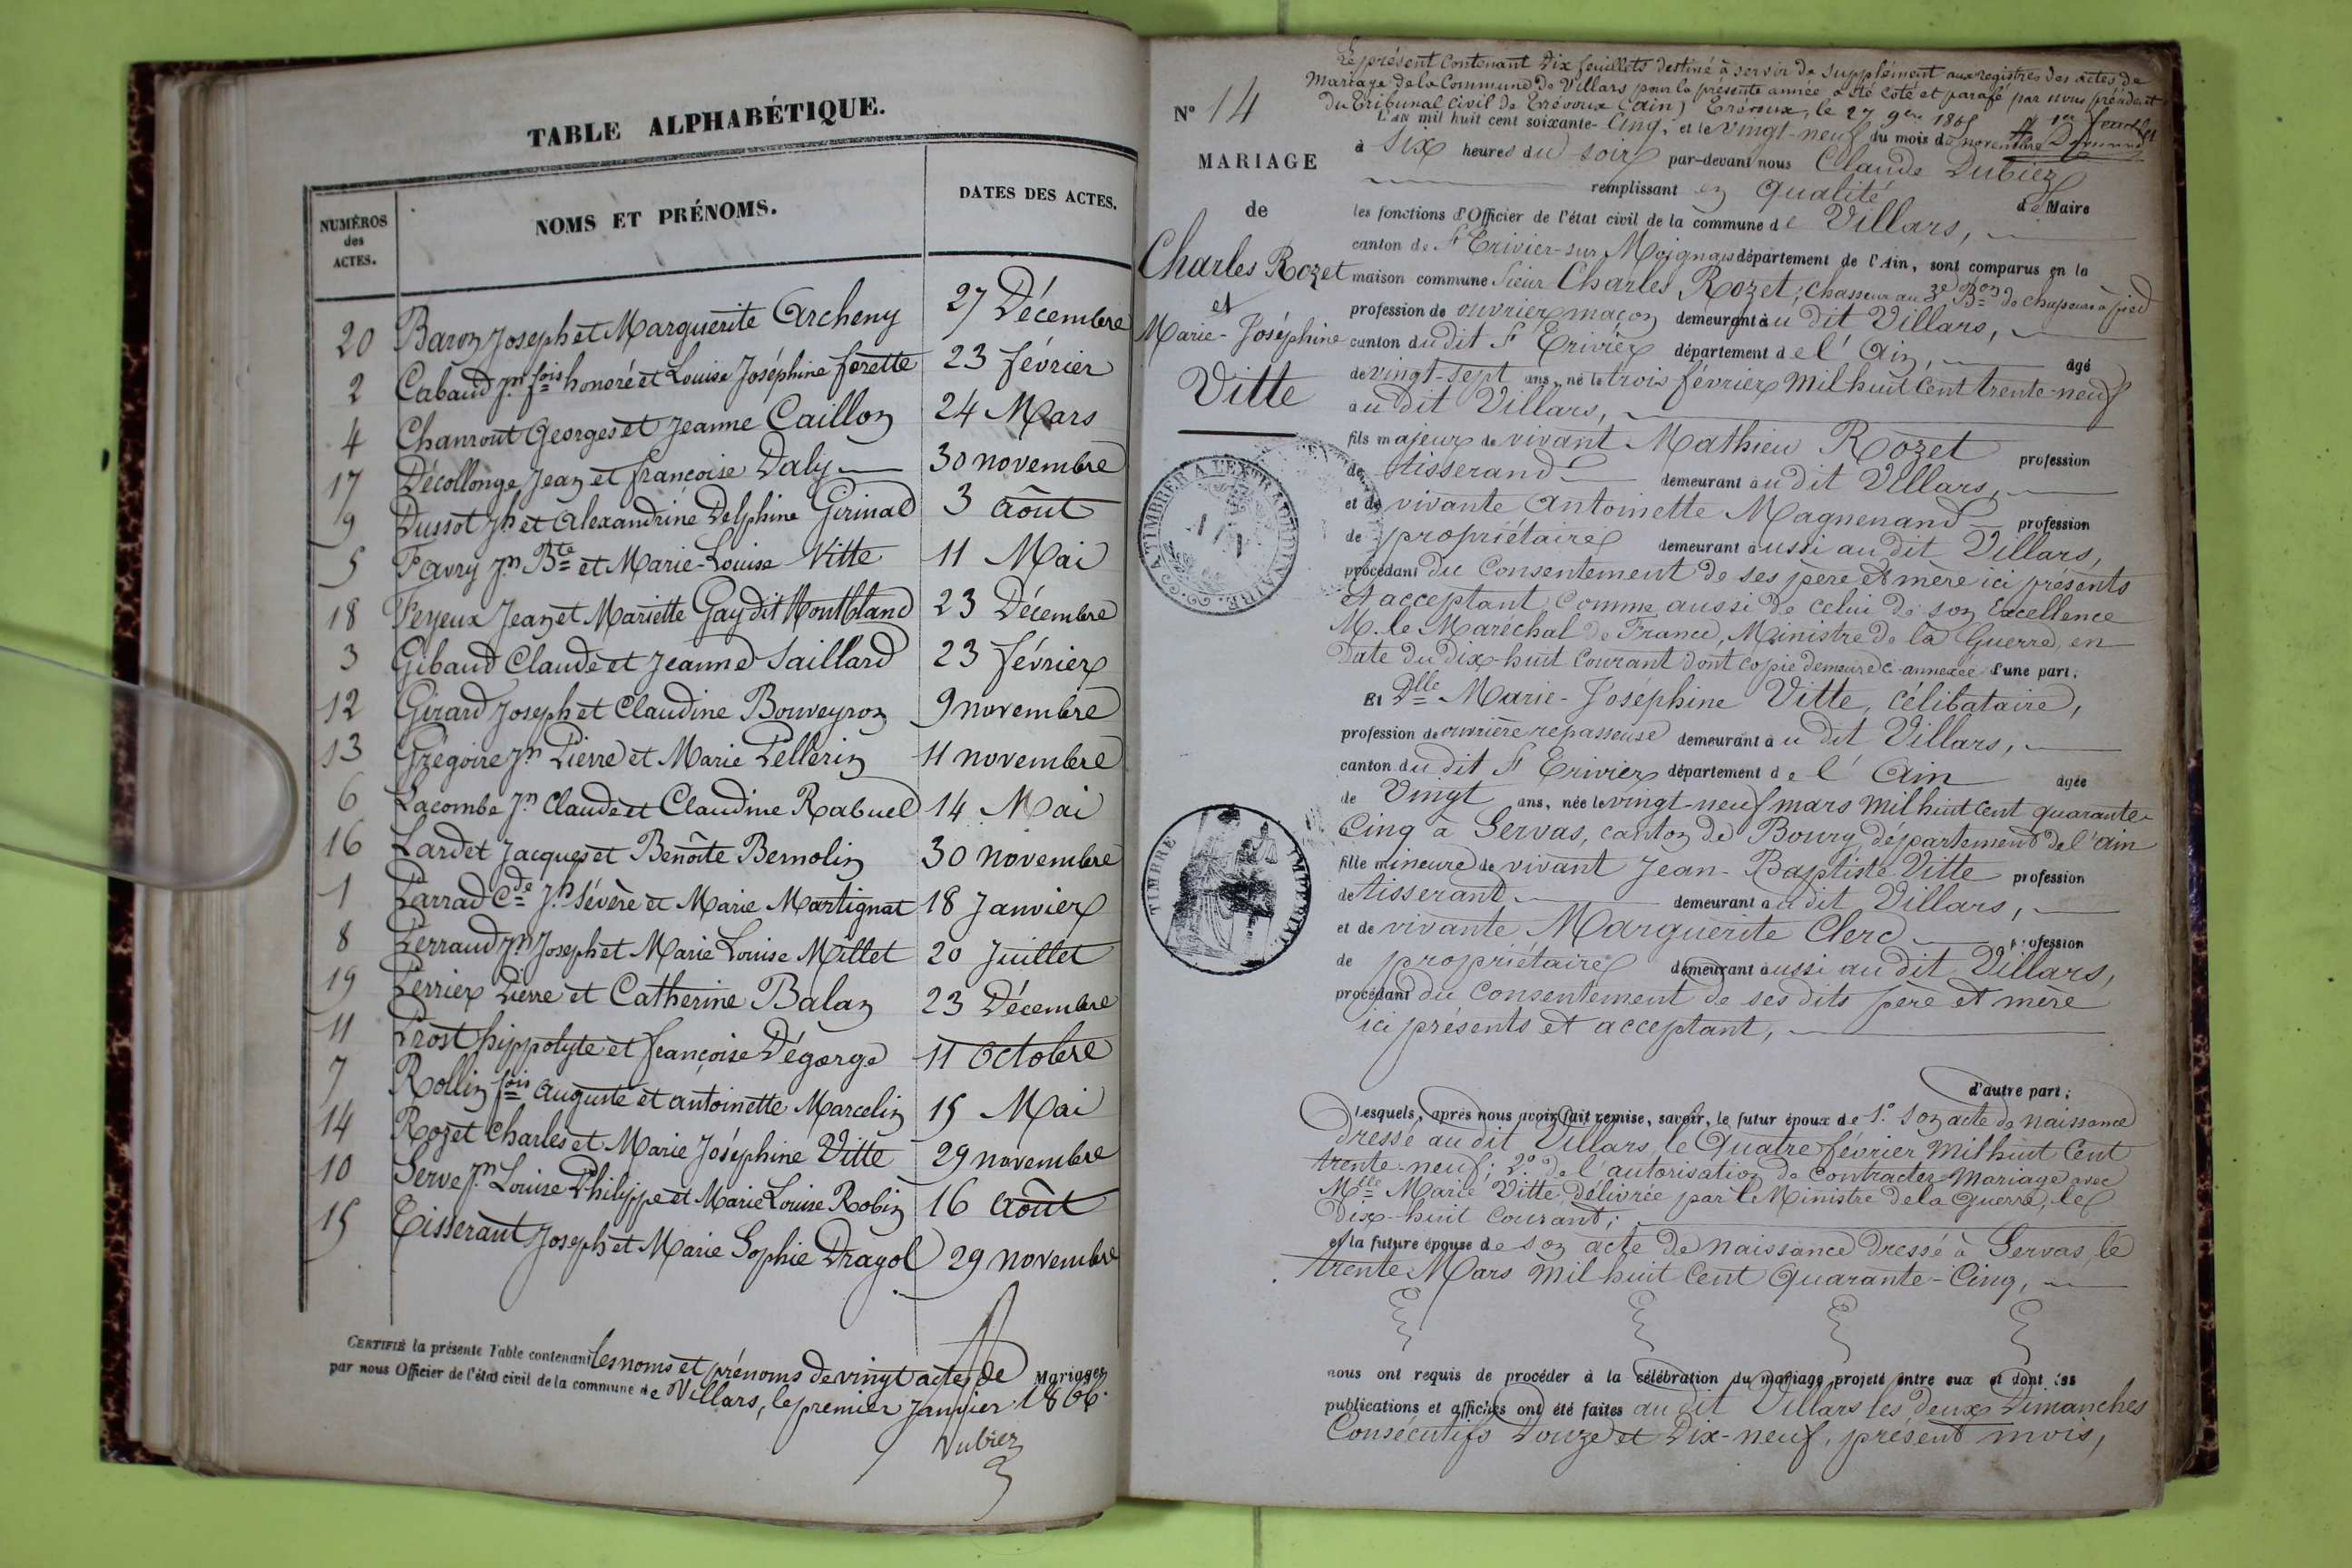 TABLE ALPHABÉTIQUE.
NUMÉROS des ACTES.
NOMS ET PRÉNOMS.
DATES DES ACTES.
20 Baron Joseph et Marguerite Archeny 27 Décembre
2 Cabaud Jn fois honoré et Louise Joséphine forette 23 février
4 Chanrout Georges et Jeanne Caillon 24 Mars
17 Décollonge Jean et françoise Daly 30 novembre
9 Dussot Jh et Alexandrine Delphine Girinad 3 Août
5 Favry Jn Bte et Marie-Louise Vitte 11 Mai
18 Feyeux Jean et Mariette Gay dit Montbland 23 Décembre
3 Gibaud Claude et Jeanne Saillard 23 février
12 Girard Joseph et Claudine Bouveyron 9 novembre
13 Grégoire Jn Pierre et Marie Pellerin 11 novembre
6 Lacombe Jn Claude et Claudine Rabuel 14 Mai
16 Lardet Jacques et Benoîte Bernolin 30 novembre
1 Parrad Cde Jh Sévère et Marie Martignat 18 Janvier
8 Perraud Jn Joseph et Marie Louise Millet 20 Juillet
19 Perrier Pierre et Catherine Balan 23 Décembre
11 Prost hippolyte et françoise Dégorge 11 Octobre
7 Rollin fois Auguste et antoinette Marcelin 15 Mai
14 Rozet Charles et Marie Joséphine Vitte 29 novembre
10 Serve Jn Louise Philippe et Marie Louise Robin 16 Août
15 Tisserant Joseph et Marie Sophie Dragol 29 novembre
CERTIFIÉ la présente Table contenant les noms et prénoms de vingt actes de Mariages
par nous Officier de l'état civil de la commune de Villars, le premier Janvier 1866.
Dubiez
Le présent Contenant Dix feuillets destiné à servir de Supplément aux registres des actes de
Mariage de la Commune de Villars pour la présente année a été coté et parafé par nous président
du Tribunal Civil de Trévoux (ain) Trévoux, le 27 9bre 1865
1er feuillet
N° 14
MARIAGE
de
Charles Rozet
et
Marie-Joséphine
Vitte
A TIMBRER A L'EXTRAORDINAIRE
TIMBRE IMPERIAL
L'AN mil huit cent soixante-Cinq, et le vingt-neuf du mois de novembre
à Six heures du soir par-devant nous Claude Dubiez
remplissant en qualité de Maire
les fonctions d'Officier de l'état civil de la commune de Villars,
canton de St Trivier-sur Moignans département de l'Ain, sont comparus en la
maison commune Sieur Charles Rozet, Chasseur au 3e Bon de chasseurs à pied
profession de ouvrier maçon demeurant au dit Villars,
canton du dit St Trivier département de l'Ain, agé
de vingt-sept ans, né le trois février Mil huit Cent trente-neuf
au dit Villars,
fils majeur de vivant Mathieu Rozet profession
de tisserand demeurant au dit Villars,
et de vivante Antoinette Magnenand profession
de propriétaire demeurant aussi au dit Villars,
procédant du Consentement de ses père et mère ici présents
et acceptant, Comme aussi de celui de son Excellence
M. le Maréchal de France, Ministre de la Guerre, en
Date du dix-huit Courant dont copie demeure ci-annexée d'une part;
Et Dlle Marie-Joséphine Vitte, Célibataire,
profession de ouvrière repasseuse demeurant au dit Villars,
canton du dit St Trivier département de l'Ain agée
de Vingt ans, née le vingt-neuf mars mil huit Cent quarante-
Cinq à Servas, canton de Bourg, département de l'ain
fille mineure de vivant Jean-Baptiste Vitte profession
de tisserant demeurant au dit Villars,
et de vivante Marguerite Clerc profession
de propriétaire demeurant aussi au dit Villars,
procédant du Consentement de ses dits père et mère
ici présents et acceptant,
d'autre part;
Lesquels, après nous avoir fait remise, savoir, le futur époux de 1° son acte de naissance
dressé au dit Villars le Quatre février Mil huit Cent
trente-neuf; 2° de l'autorisation de Contracter Mariage avec
Melle Marie Vitte, délivrée par le Ministre de la Guerre, le
Dix-huit Courant;
et la future épouse de son acte de Naissance dressé à Servas, le
trente Mars Mil huit Cent Quarante-Cinq,
nous ont requis de procéder à la célébration du mariage projeté entre eux et dont les
publications et affiches ont été faites au dit Villars les deux Dimanches
Consécutifs Douze et Dix-neuf, présent mois,